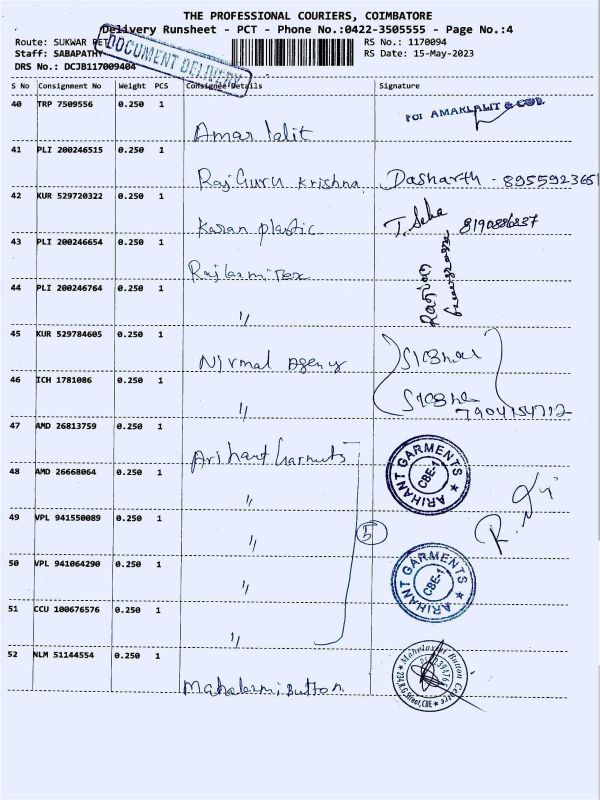 THE PROFESSIONAL COURIERS, COIMBATORE
Delivery Runsheet - PCT - Phone No.:0422-3505555 - Page No.:4
Route: SUKWAR PET
Staff: SABAPATHY
DRS No.: DCJB117009404
DOCUMENT DELIVERY
RS No.: 1170094
RS Date: 15-May-2023
S No Consignment No Weight PCS Consignee Details Signature
40 TRP 7509556 0.250 1
Amar lalit
FOI AMARLALIT &
41 PLI 200246515 0.250 1
Raj Guru Krishna Dasharth - 8955923651
42 KUR 529720322 0.250 1
Karan plastic
43 PLI 200246654 0.250 1
Rajlaxmi Tex
44 PLI 200246764 0.250 1
"
45 KUR 529784605 0.250 1
Nirmal Ageny
46 ICH 1781086 0.250 1
" 7904154712
47 AMD 26813759 0.250 1
Arihant Garments
ARIHANT GARMENTS ★ CBE-1 ★
48 AMD 26668064 0.250 1
"
49 VPL 941550089 0.250 1
" 5
50 VPL 941064290 0.250 1
"
ARIHANT GARMENTS ★ CBE-1 ★
51 CCU 100676576 0.250 1
"
52 NLM 51144554 0.250 1
Mahalaxmi Button
Mahalaxmi Button